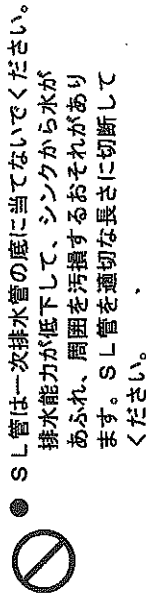 ● SL管は一次排水管の底に当てないでください。
排水能力が低下して、シンクから水が
あふれ、周囲を汚損するおそれがあり
ます。SL管を適切な長さに切断して
ください。